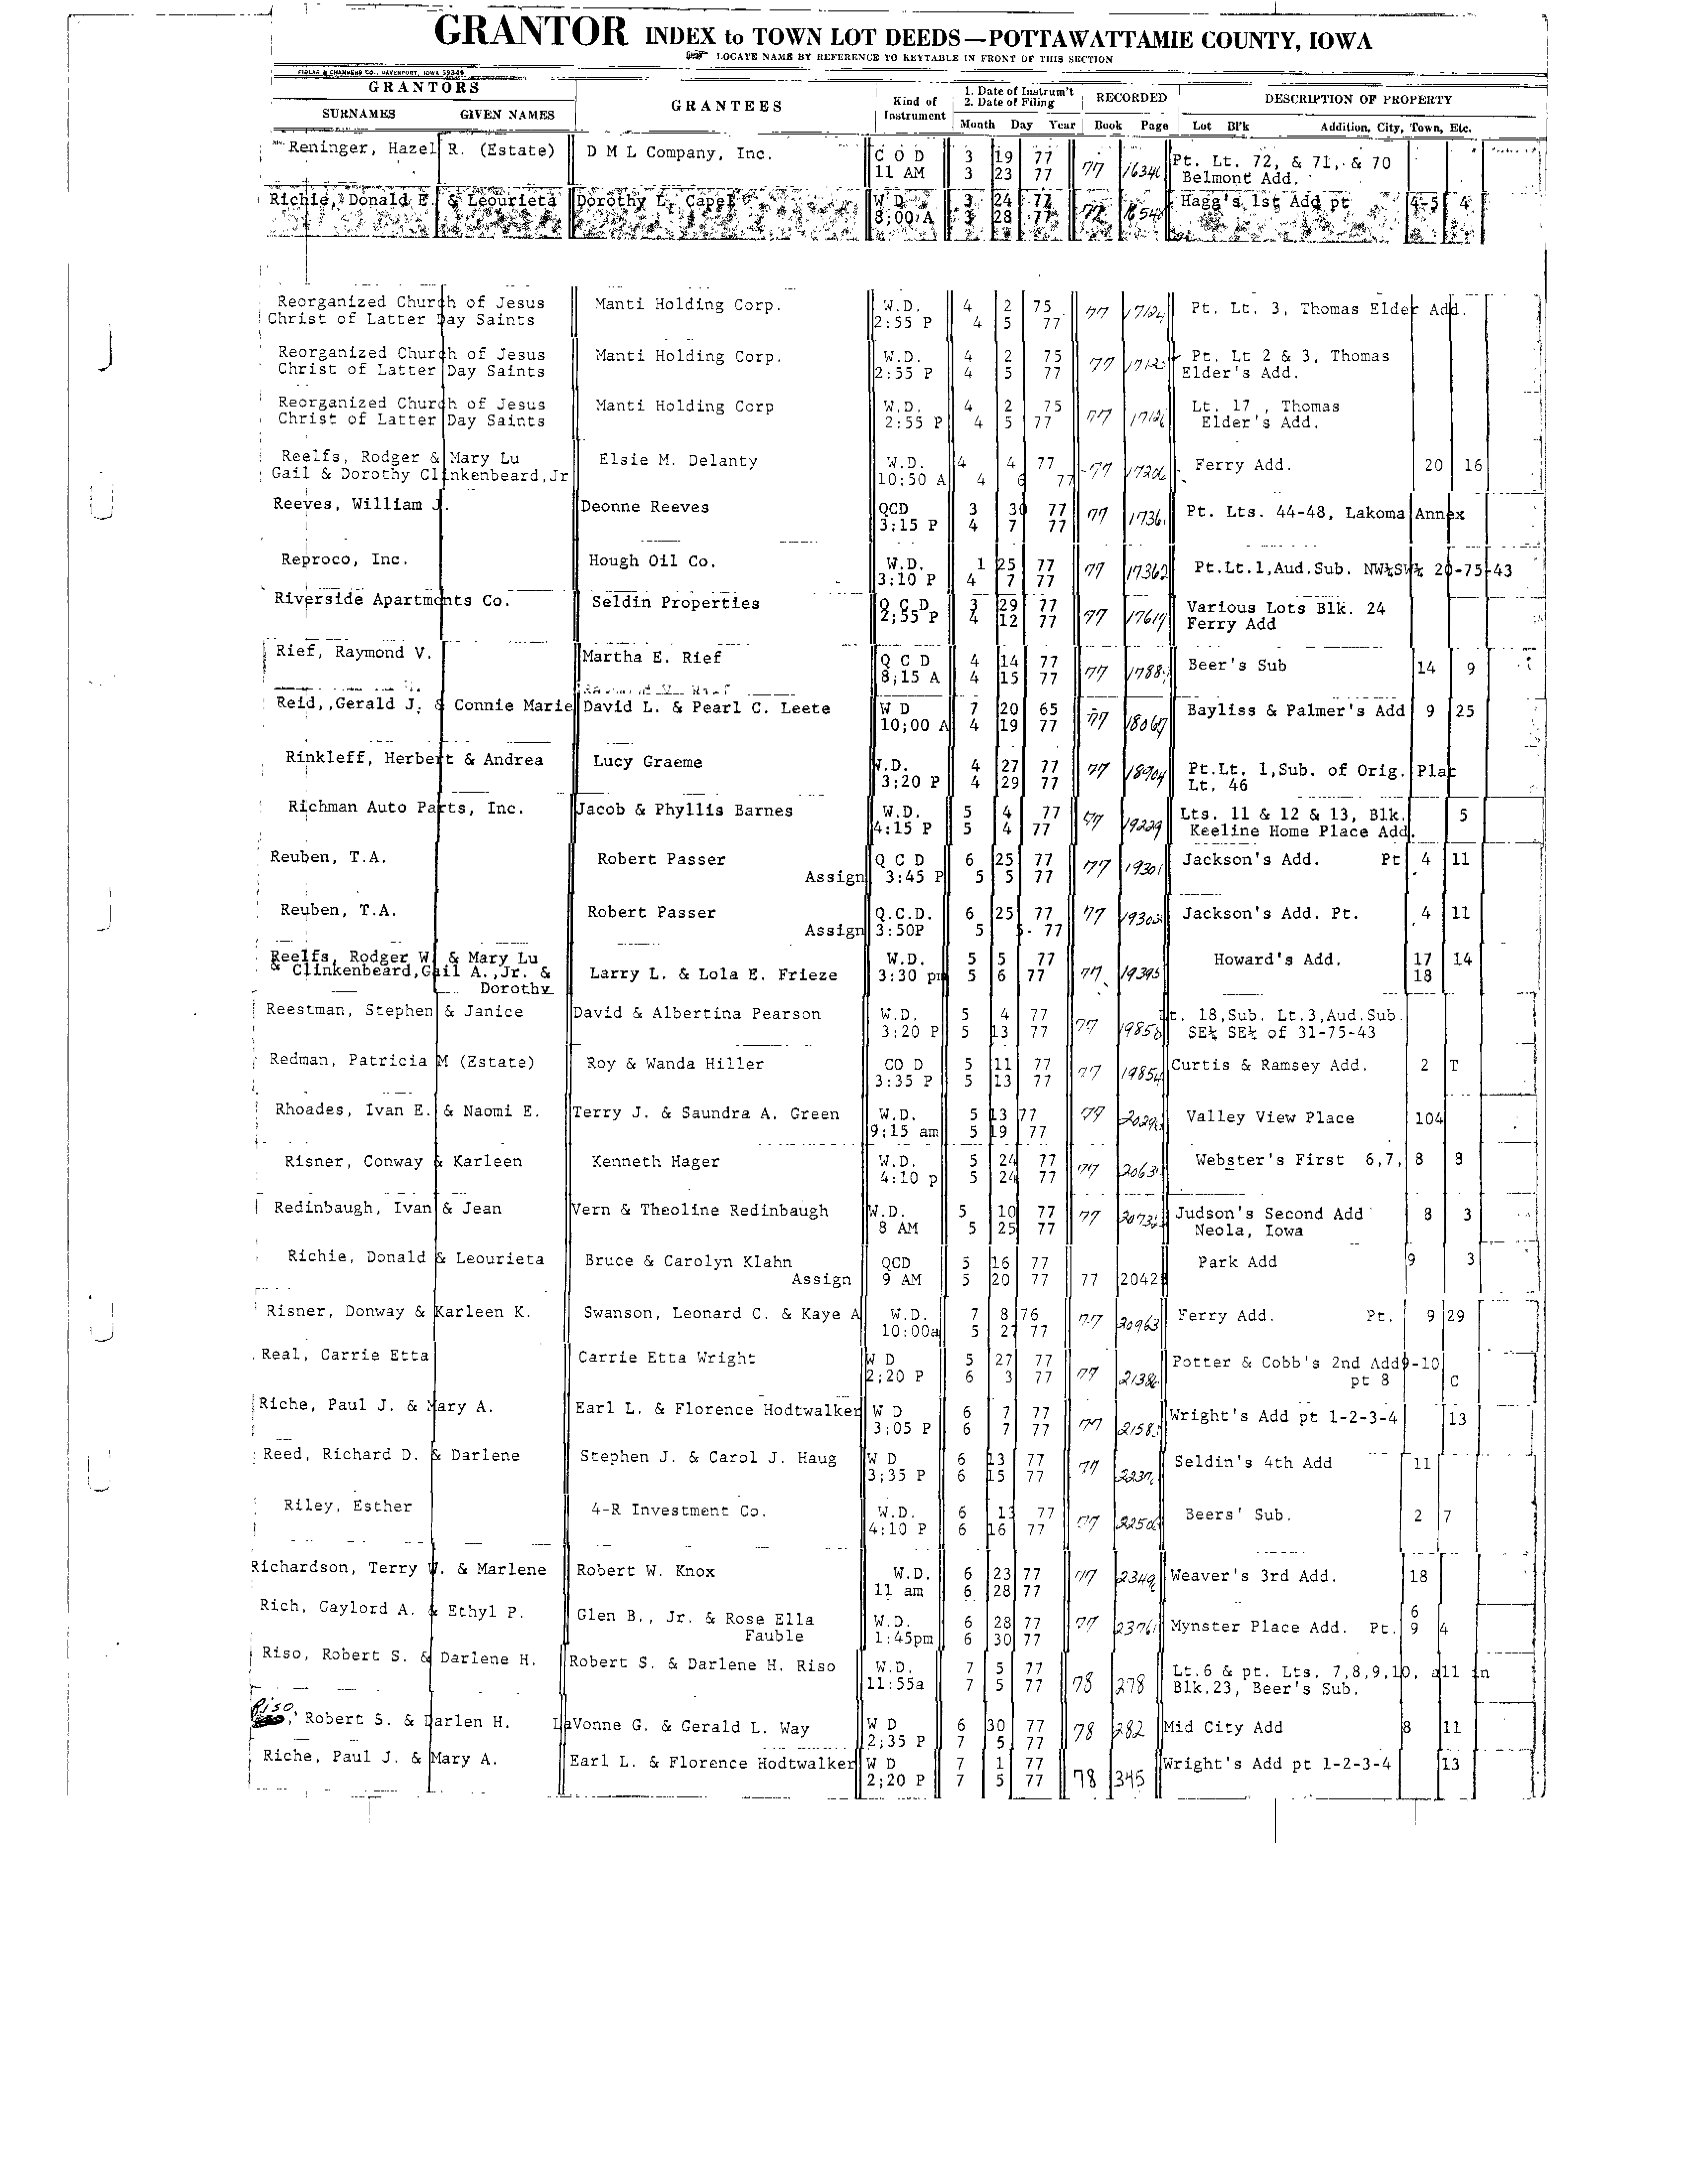 GRANTOR INDEX to TOWN LOT DEEDS—POTTAWATTAMIE COUNTY, IOWA
LOCATE NAME BY REFERENCE TO KEYTABLE IN FRONT OF THIS SECTION
FIDLAR & CHAMBERS CO., DAVENPORT, IOWA
GRANTORS GRANTEES Kind of Instrument 1. Date of Instrum't 2. Date of Filing RECORDED DESCRIPTION OF PROPERTY
SURNAMES GIVEN NAMES Month Day Year Book Page Lot Bl'k Addition, City, Town, Etc.
Reninger, Hazel R. (Estate) D M L Company, Inc. C O D 3 19 77 77 Pt. Lt. 72, & 71, & 70
11 AM 3 23 77 Belmont Add.
Richie, Donald E. & Leourieta Dorothy L. Capel W D 3 24 77 Hagg's 1st Add pt 4-5 4
8;00 A 3 28 77
Reorganized Church of Jesus Manti Holding Corp. W.D. 4 2 75 77 17124 Pt. Lt. 3, Thomas Elder Add.
Christ of Latter Day Saints 2:55 P 4 5 77
Reorganized Church of Jesus Manti Holding Corp. W.D. 4 2 75 77 Pt. Lt 2 & 3, Thomas
Christ of Latter Day Saints 2:55 P 4 5 77 Elder's Add.
Reorganized Church of Jesus Manti Holding Corp W.D. 4 2 75 77 Lt. 17 , Thomas
Christ of Latter Day Saints 2:55 P 4 5 77 Elder's Add.
Reelfs, Rodger & Mary Lu Elsie M. Delanty W.D. 4 4 77 77 17206 Ferry Add. 20 16
Gail & Dorothy Clinkenbeard,Jr 10:50 A 4 6 77
Reeves, William J. Deonne Reeves QCD 3 30 77 77 Pt. Lts. 44-48, Lakoma Annex
3:15 P 4 7 77
Reproco, Inc. Hough Oil Co. W.D. 1 25 77 77 17362 Pt.Lt.1,Aud.Sub. NW¼SW¼ 20-75-43
3:10 P 4 7 77
Riverside Apartments Co. Seldin Properties Q.C.D. 3 29 77 77 17619 Various Lots Blk. 24
2;55 P 4 12 77 Ferry Add
Rief, Raymond V. Martha E. Rief Q C D 4 14 77 77 Beer's Sub 14 9
8;15 A 4 15 77
Reid,,Gerald J. & Connie Marie David L. & Pearl C. Leete W D 7 20 65 77 18067 Bayliss & Palmer's Add 9 25
10;00 A 4 19 77
Rinkleff, Herbert & Andrea Lucy Graeme W.D. 4 27 77 77 18904 Pt.Lt. 1,Sub. of Orig. Plat
3;20 P 4 29 77 Lt. 46
Richman Auto Parts, Inc. Jacob & Phyllis Barnes W.D. 5 4 77 77 19229 Lts. 11 & 12 & 13, Blk. 5
4:15 P 5 4 77 Keeline Home Place Add.
Reuben, T.A. Robert Passer Q C D 6 25 77 77 19301 Jackson's Add. Pt 4 11
Assign 3:45 P 5 5 77
Reuben, T.A. Robert Passer Q.C.D. 6 25 77 77 19303 Jackson's Add. Pt. 4 11
Assign 3:50P 5 5. 77
Reelfs, Rodger W. & Mary Lu W.D. 5 5 77 Howard's Add. 17 14
& Clinkenbeard,Gail A.,Jr. & Larry L. & Lola E. Frieze 3:30 pm 5 6 77 77 19395 18
Dorothy
Reestman, Stephen & Janice David & Albertina Pearson W.D. 5 4 77 77 Lt. 18,Sub. Lt.3,Aud.Sub.
3:20 P 5 13 77 SE¼ SE¼ of 31-75-43
Redman, Patricia M (Estate) Roy & Wanda Hiller CO D 5 11 77 77 19854 Curtis & Ramsey Add. 2 T
3:35 P 5 13 77
Rhoades, Ivan E. & Naomi E. Terry J. & Saundra A. Green W.D. 5 13 77 77 Valley View Place 104
9;15 am 5 19 77
Risner, Conway & Karleen Kenneth Hager W.D. 5 24 77 77 Webster's First 6,7, 8 8
4:10 p 5 24 77
Redinbaugh, Ivan & Jean Vern & Theoline Redinbaugh W.D. 5 10 77 77 Judson's Second Add 8 3
8 AM 5 25 77 Neola, Iowa
Richie, Donald & Leourieta Bruce & Carolyn Klahn QCD 5 16 77 Park Add 9 3
Assign 9 AM 5 20 77 77 2042
Risner, Donway & Karleen K. Swanson, Leonard C. & Kaye A W.D. 7 8 76 77 20963 Ferry Add. Pt. 9 29
10:00a 5 27 77
Real, Carrie Etta Carrie Etta Wright W D 5 27 77 77 21386 Potter & Cobb's 2nd Add 9-10
2;20 P 6 3 77 pt 8 C
Riche, Paul J. & Mary A. Earl L. & Florence Hodtwalker W D 6 7 77 77 Wright's Add pt 1-2-3-4 13
3;05 P 6 7 77
Reed, Richard D. & Darlene Stephen J. & Carol J. Haug W D 6 13 77 77 Seldin's 4th Add 11
3;35 P 6 15 77
Riley, Esther 4-R Investment Co. W.D. 6 13 77 77 22506 Beers' Sub. 2 7
4:10 P 6 16 77
Richardson, Terry W. & Marlene Robert W. Knox W.D. 6 23 77 77 Weaver's 3rd Add. 18
11 am 6 28 77
Rich, Gaylord A. & Ethyl P. Glen B., Jr. & Rose Ella W.D. 6 28 77 77 23761 Mynster Place Add. Pt. 6 9 4
Fauble 1:45pm 6 30 77
Riso, Robert S. & Darlene H. Robert S. & Darlene H. Riso W.D. 7 5 77 78 278 Lt.6 & pt. Lts. 7,8,9,10, all in
11:55a 7 5 77 Blk.23, Beer's Sub.
Riso, Robert S. & Darlen H. LaVonne G. & Gerald L. Way W D 6 30 77 78 282 Mid City Add 8 11
2;35 P 7 5 77
Riche, Paul J. & Mary A. Earl L. & Florence Hodtwalker W D 7 1 77 78 345 Wright's Add pt 1-2-3-4 13
2;20 P 7 5 77